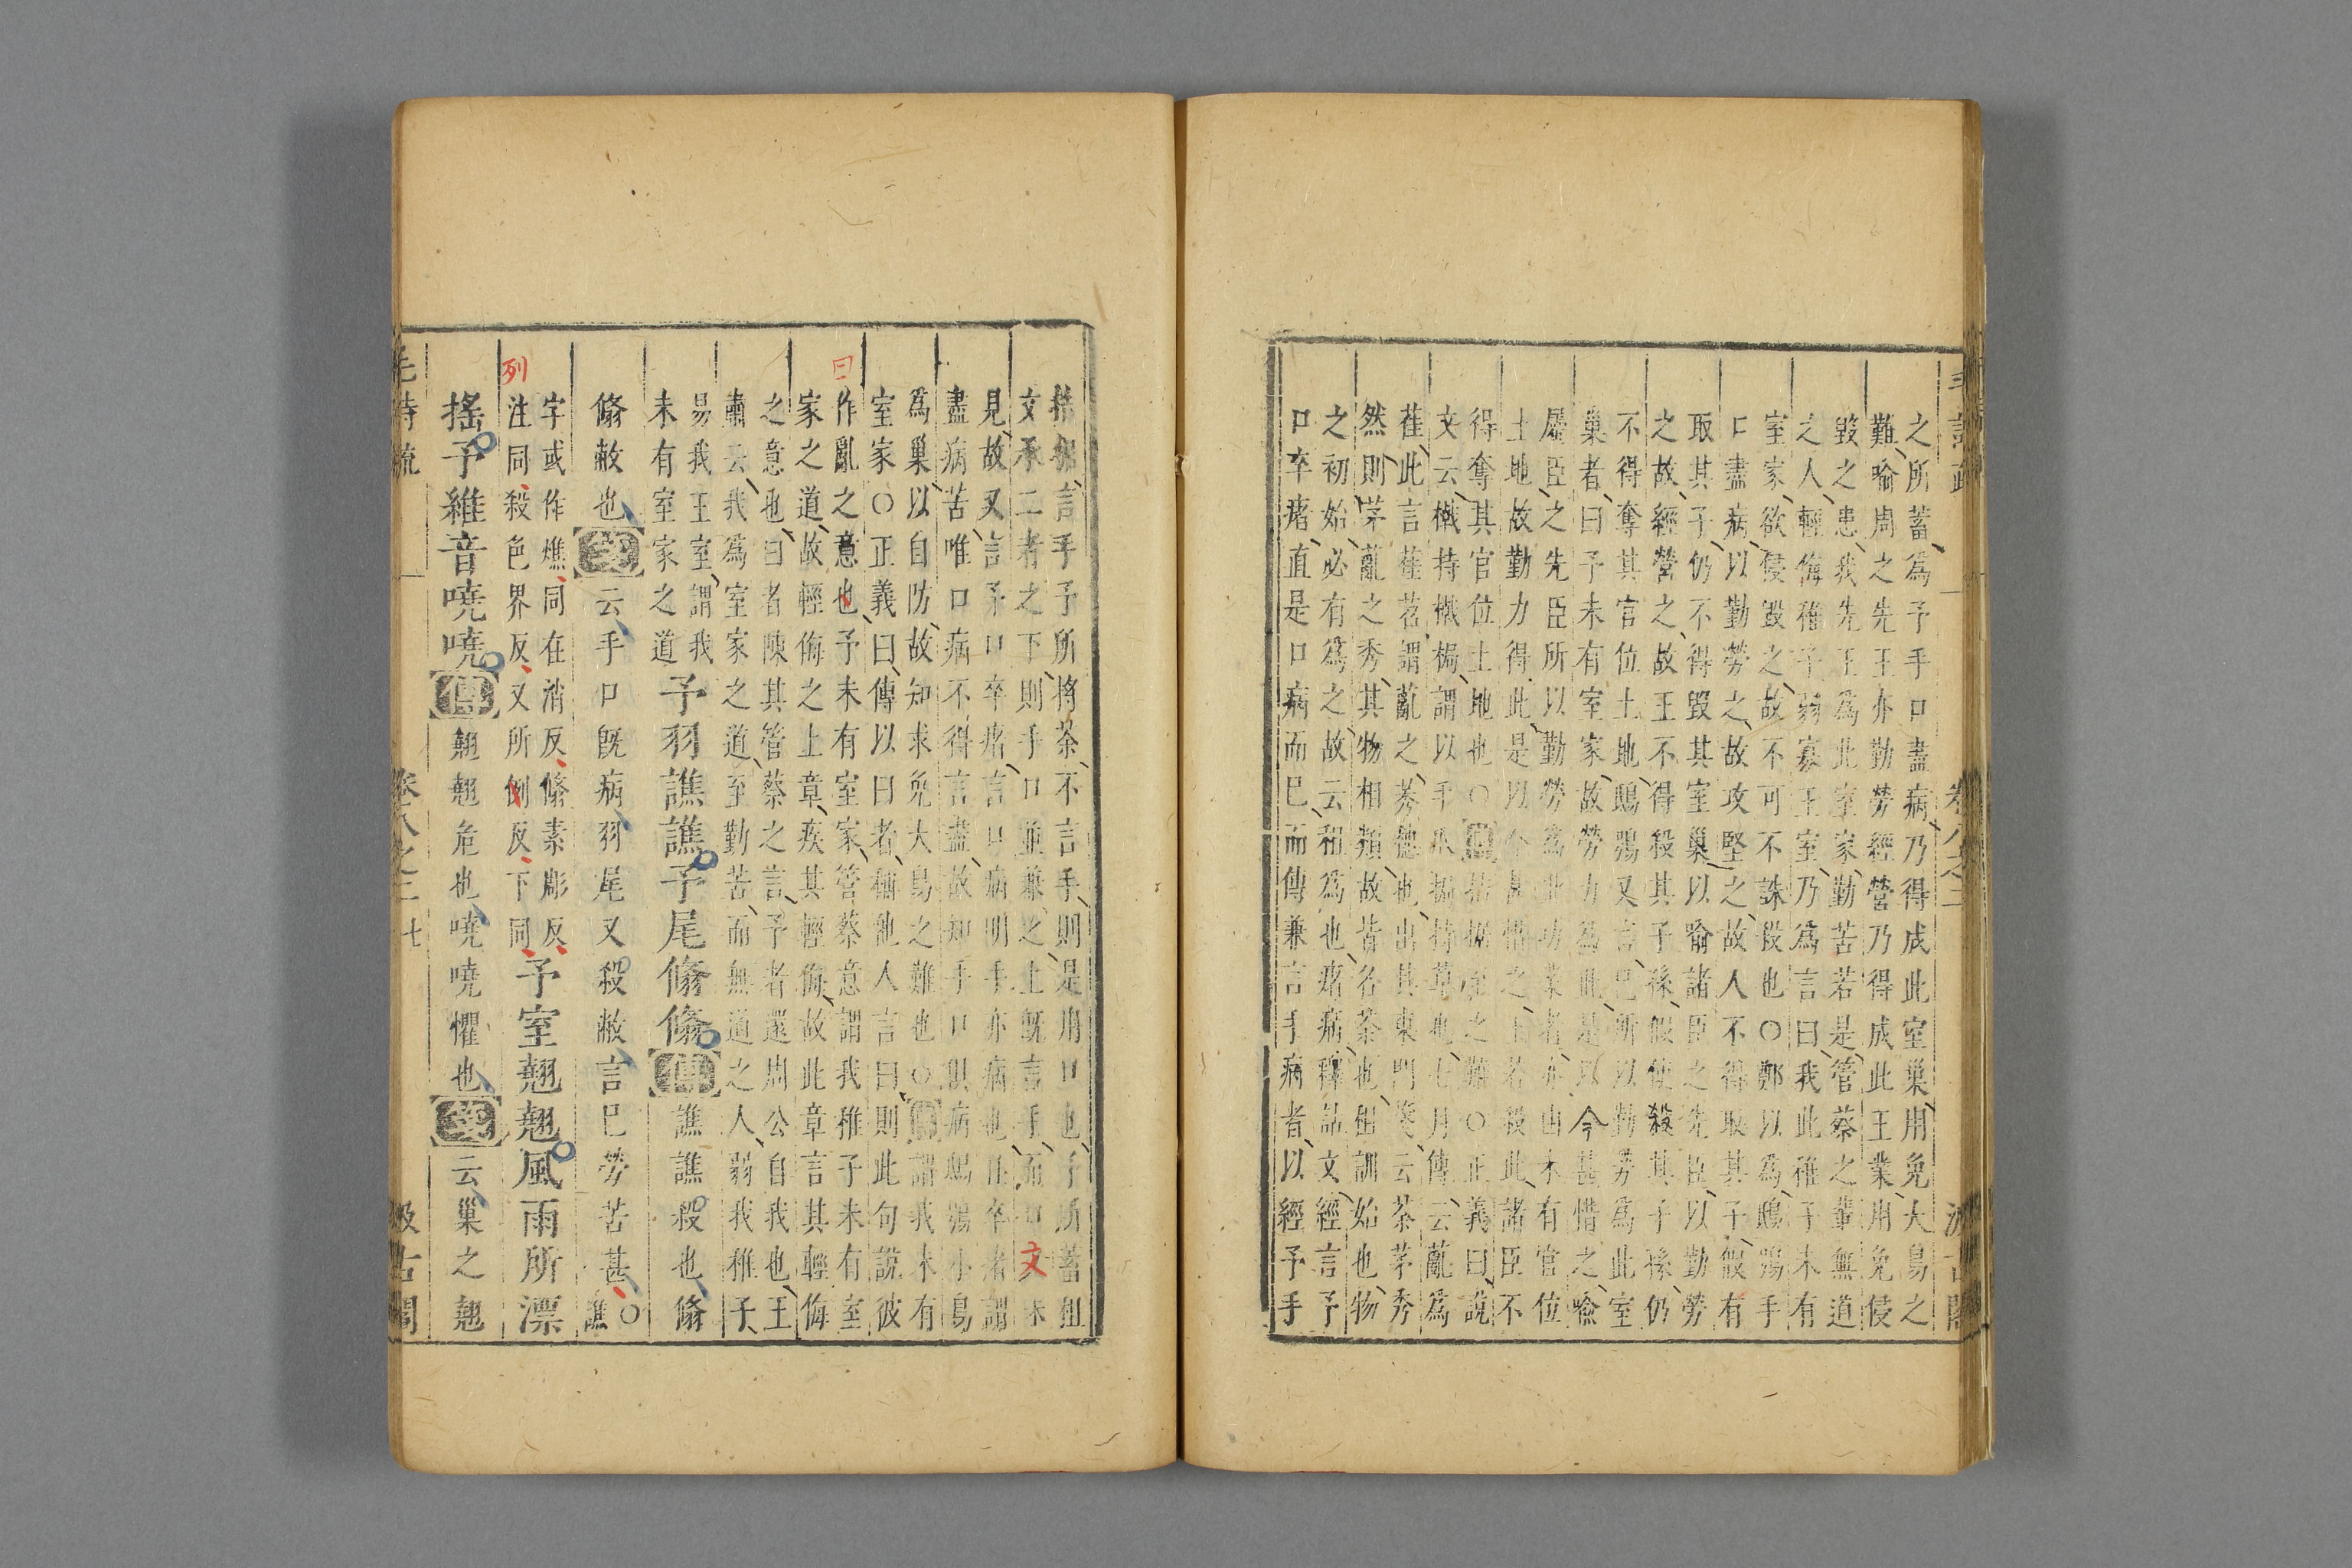 毛詩疏
卷八之二
汲古閣
之所蓄爲予手口盡病乃得成此室巢用免大鳥之
難喻周之先王亦勤勞經營乃得成此王業用免侵
毀之患我先王爲此室家勤苦若是管蔡之輩無道
之人輕侮稚子弱寡王室乃爲言曰我此稚子未有
室家欲侵毀之故不可不誅殺也○鄭以爲鴟鴞手
口盡病以勤勞之故攻堅之故人不得取其子假有
取其子仍不得毀其室巢以喻諸臣之先臣以勤勞
之故經營之故王不得殺其子孫假使殺其子孫仍
不得奪其官位土地鴟鴞又言巳所以勤勞爲此室
巢者曰予未有室家故勞力爲此是以今甚惜之喻
屬臣之先臣所以勤勞爲此功業者亦由未有官位
土地故勤力得此是以今甚惜之王若殺此諸臣不
得奪其官位土地也○傳拮据至之難○正義曰說
文云撠持撠挶謂以手爪挶持草也七月傳云薍爲
萑此言萑苕謂薍之秀穗也出其東門箋云荼茅秀
然則茅薍之秀其物相類故皆名荼也租訓始也物
之初始必有爲之故云租爲也瘏病釋詁文經言予
口卒瘏直是口病而巳而傳兼言手病者以經予手
拮据言手予所捋荼不言手則是用口也予所蓄租
文承二者之下則手口並兼之上旣言手而口文未
見故又言予口卒瘏言口病明手亦病也且卒瘏謂
盡病苦唯口病不得言盡故知手口俱病鴟鴞小鳥
爲巢以自防故知求免大鳥之難也○箋謂我未有
室家○正義曰傳以曰者稱他人言曰則此句說彼
作亂之意也予未有室家管蔡意謂我稚子未有室
家之道故輕侮之上章疾其輕侮故此章言其輕侮
之意也曰者陳其管蔡之言予者還周公自我也王
肅云我爲室家之道至勤苦而無道之人弱我稚子
易我王室謂我
未有室家之道
予羽譙譙予尾翛翛傳譙譙殺也翛
翛敝也箋云手口旣病羽尾又殺敝言巳勞苦甚○譙
字或作燋同在消反翛素彫反
注同殺色界反又所例反下同
予室翹翹風雨所漂
搖予維音嘵嘵傳翹翹危也嘵嘵懼也箋云巢之翹
毛詩疏
卷八之二
七
汲古閣
曰
列
文